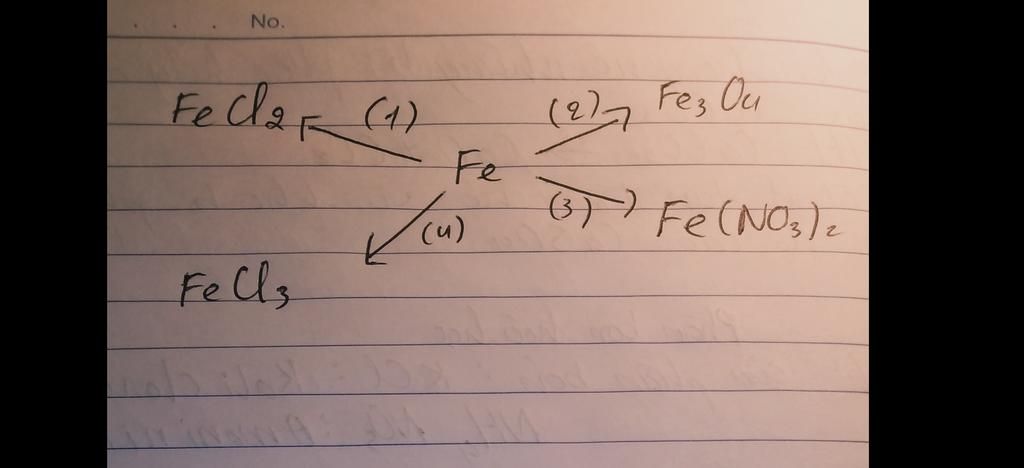 No.
FeCl2 (1) (2) Fe3O4
Fe
(3) Fe(NO3)2
(4)
FeCl3